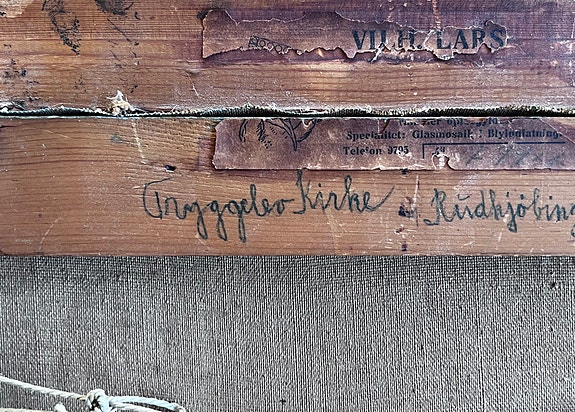 VILH. LARS
Specialitet: Glasmosaik. Blyindfatning.
Telefon 9795
Tryggelev Kirke Rudkjöbing